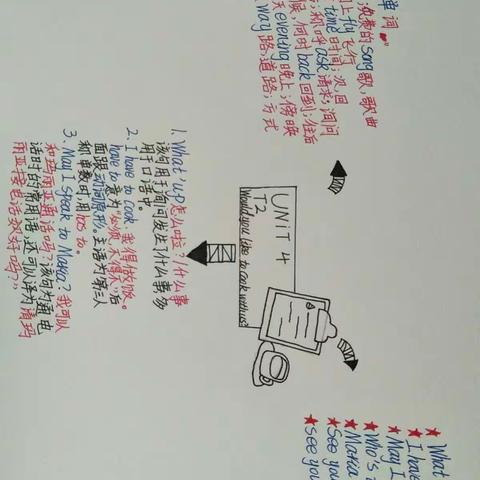 单词
免费的 song歌,歌曲
上 fly飞行
time时间;次,回
称呼 ask请求;询问
候,何时 back回到;往后
evening晚上;傍晚
way路;道路;方式
UNiT 4
T2
Would you like to cook with us?
1. What's up?怎么啦?/什么事
该句用于询问发生了什么事,多
用于口语中。
2. I have to cook.我得做饭。
have to意为"必须,不得不",后
面跟动词原形。主语为第三人
称单数时,用has to.
3. May I speak to Maria?我可以
和玛丽亚通话吗?该句为通电
话时的常用语,还可以译为"请玛
丽亚接电话好吗?"
★What
★I have
★May I
★Who's
★Maria
★See you
★see you